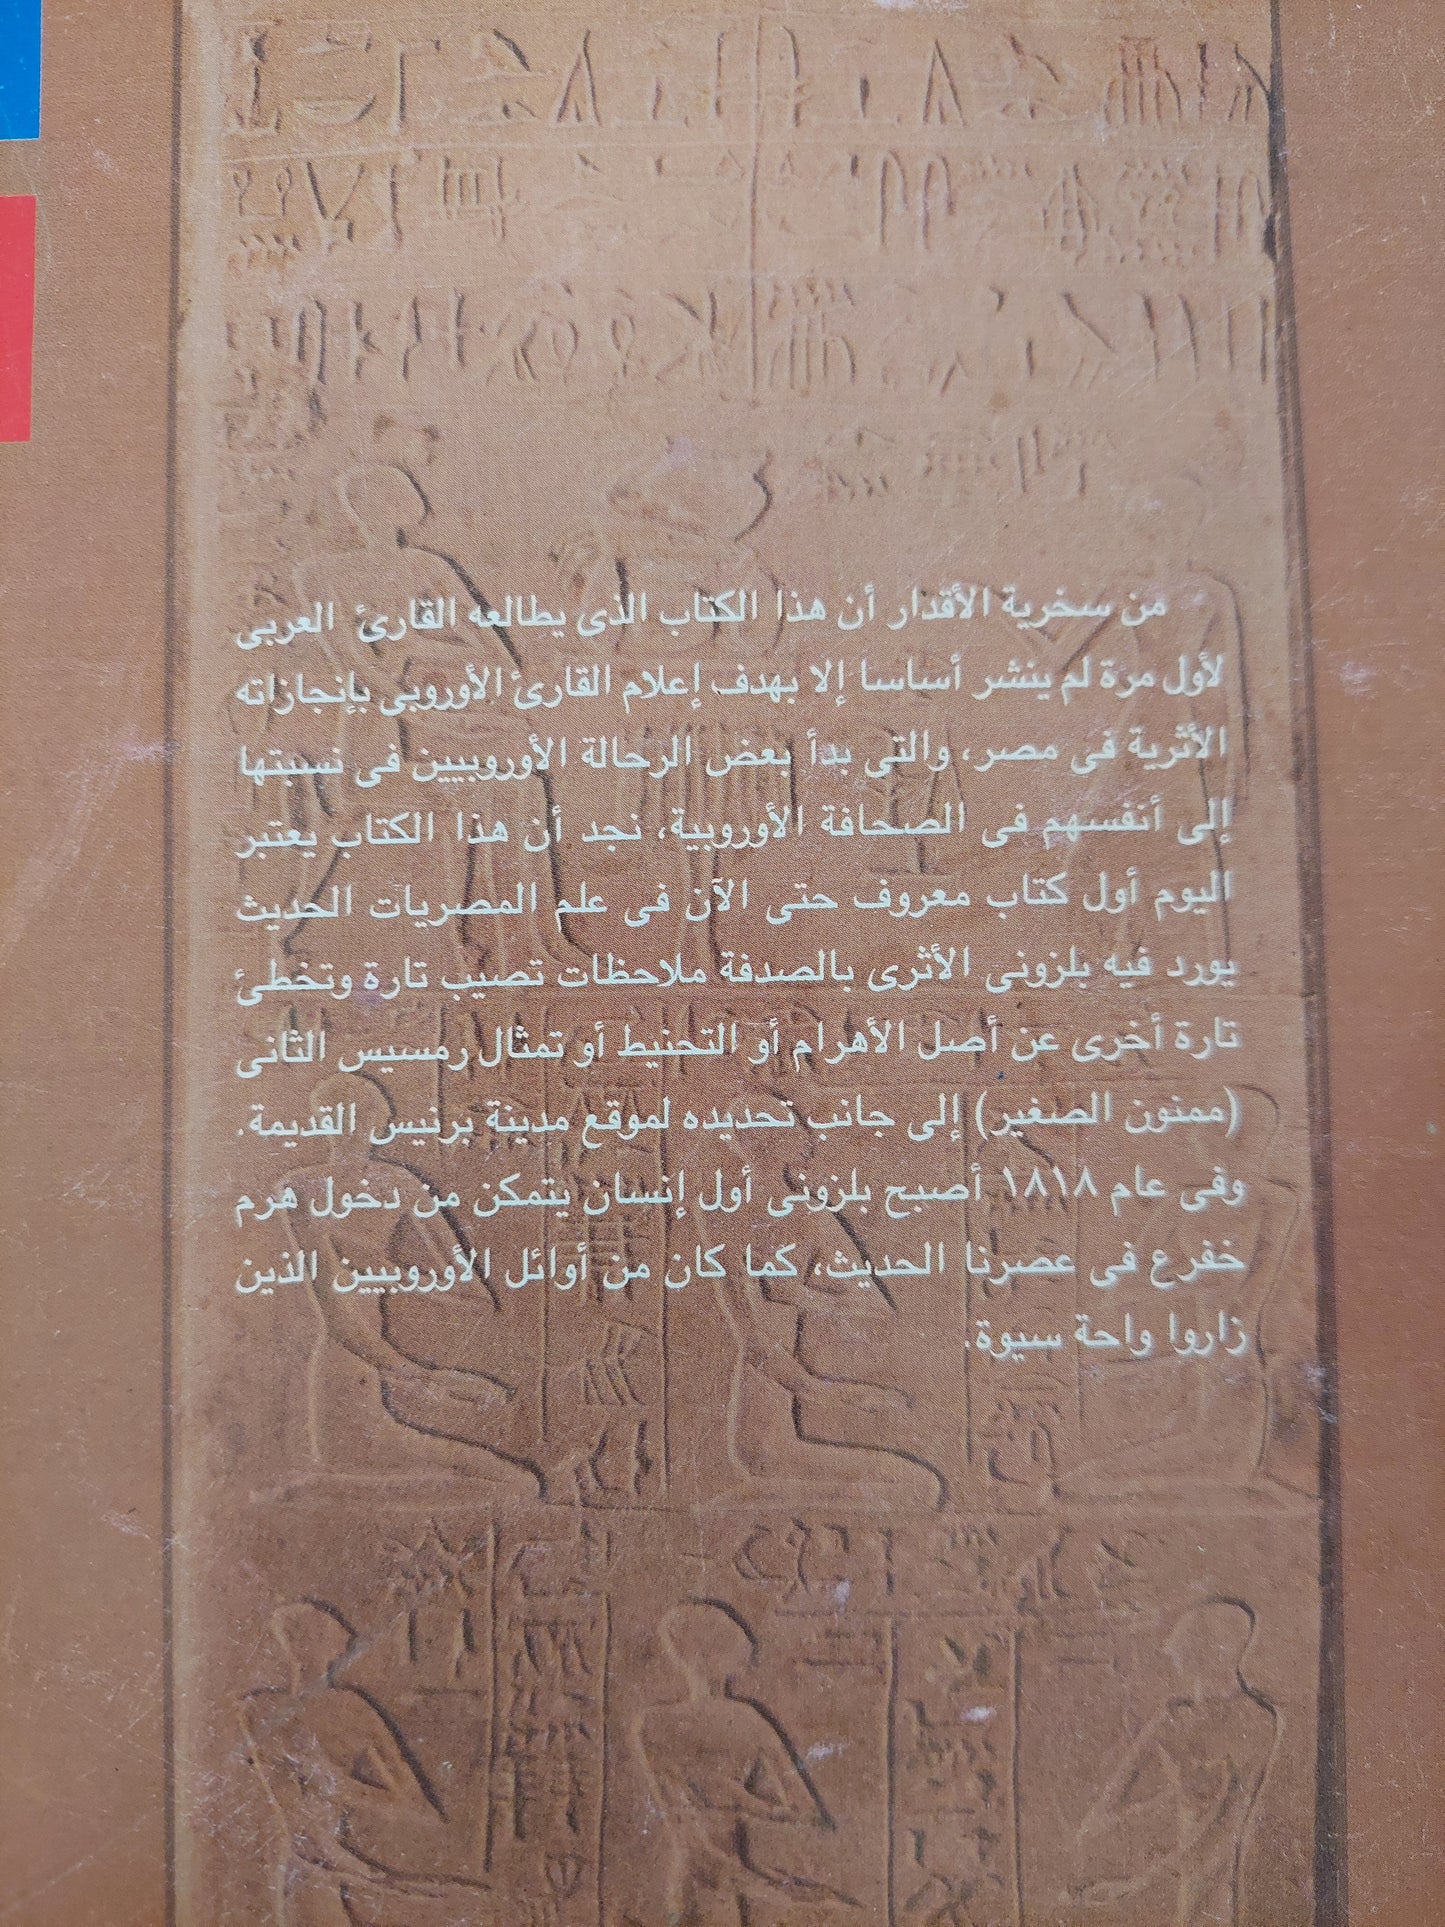 من سخرية الأقدار أن هذا الكتاب الذى يطالعه القارئ العربى
لأول مرة لم ينشر أساسا إلا بهدف إعلام القارئ الأوروبى بإنجازاته
الأثرية فى مصر، والتى بدأ بعض الرحالة الأوروبيين فى نسبتها
إلى أنفسهم فى الصحافة الأوروبية، نجد أن هذا الكتاب يعتبر
اليوم أول كتاب معروف حتى الآن فى علم المصريات الحديث
يورد فيه بلزونى الأثرى بالصدفة ملاحظات تصيب تارة وتخطئ
تارة أخرى عن أصل الأهرام أو التحنيط أو تمثال رمسيس الثانى
(ممنون الصغير) إلى جانب تحديده لموقع مدينة برنيس القديمة.
وفى عام ١٨١٨ أصبح بلزونى أول إنسان يتمكن من دخول هرم
خفرع فى عصرنا الحديث، كما كان من أوائل الأوروبيين الذين
زاروا واحة سيوة.